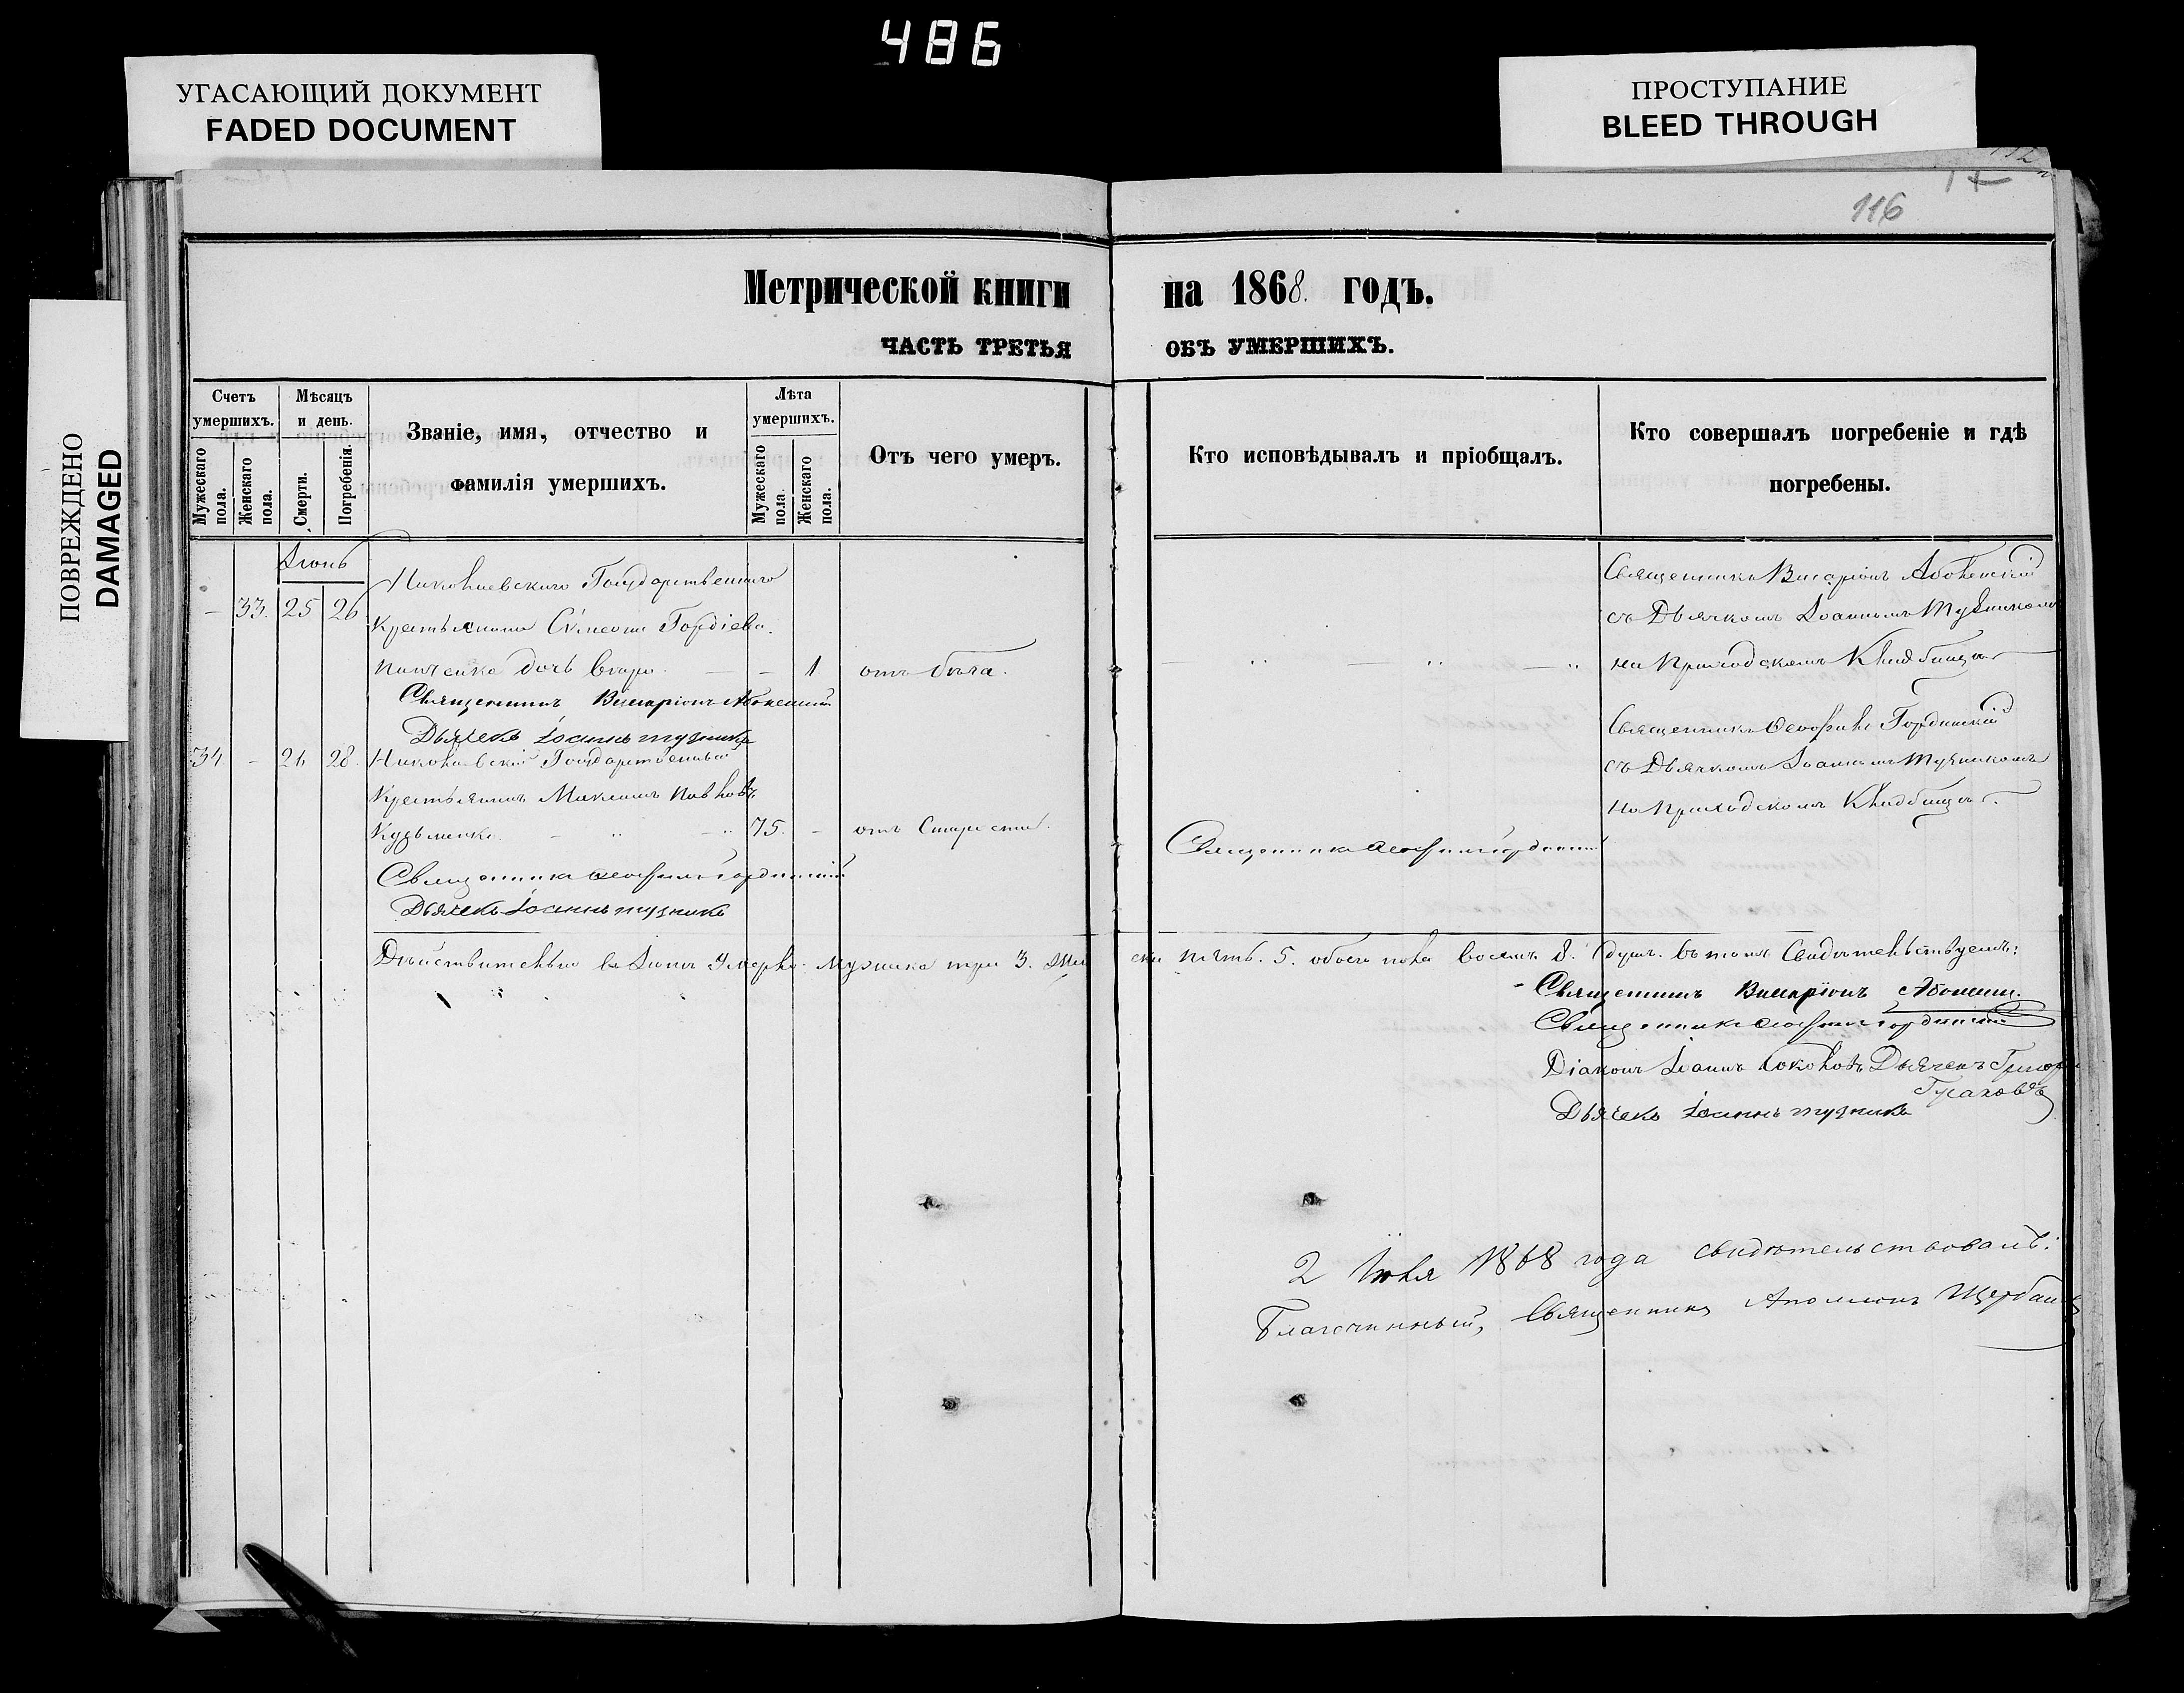 486
УГАСАЮЩИЙ ДОКУМЕНТ
FADED DOCUMENT
ПРОСТУПАНИЕ
BLEED THROUGH
ПОВРЕЖДЕНО
DAMAGED
116
Метрической книги на 1868. годъ.
ЧАСТЬ ТРЕТЬЯ ОБЪ УМЕРШИХЪ.
Счетъ умершихъ.
Мужескаго пола.
Женскаго пола.
Мѣсяцъ и день.
Смерти.
Погребенія.
Званіе, имя, отчество и
фамилія умершихъ.
Лѣта умершихъ.
Мужескаго пола.
Женскаго пола.
Отъ чего умеръ.
Кто исповѣдывалъ и пріобщалъ.
Кто совершалъ погребеніе и гдѣ
погребены.
Іюнь
Николаевскаго Государственнаго
— 33. 25 26
Крестьянина Сѵмеона Гордіева.
дочь — 1 отъ
Священникъ Виссаріонъ
Дьячекъ Іоаннъ Тузникъ
Священникъ Виссаріонъ
съ Дьячкомъ Іоанномъ Тузникомъ
на Приходскомъ Кладбищѣ
34 — 26 28. Николаевскій Государственный
Крестьянинъ Максимъ Павловъ
Кузьменко. 75. — отъ Старости.
Священникъ Ѳеофилъ Гординскій
Дьячекъ Іоаннъ Тузникъ
Священникъ Ѳеофилъ Гординскій
Священникъ Ѳеофилъ Гординскій
съ Дьячкомъ Іоанномъ Тузникомъ
на Приходскомъ Кладбищѣ.
Дѣйствительно въ Іюнѣ Умерло: мужеска три 3. женска пять. 5. обоего пола восемь 8. душъ. въ томъ Свидѣтельствуемъ:
Священникъ Виссаріонъ
Священникъ Ѳеофилъ Гординскій
Діаконъ Іоаннъ Соколовъ Дьячекъ Григорій
Дьячекъ Іоаннъ Тузникъ
2 Іюля 1868 года свидѣтельствовалъ:
Благочинный, Священникъ Аполлонъ